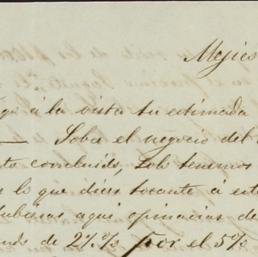 Mejic
à la vista tu estimada
Sobre el negocio del
concluido, solo tenemos
lo que dices tocante a est
aqui opiniones de
de 2½% por el 5%